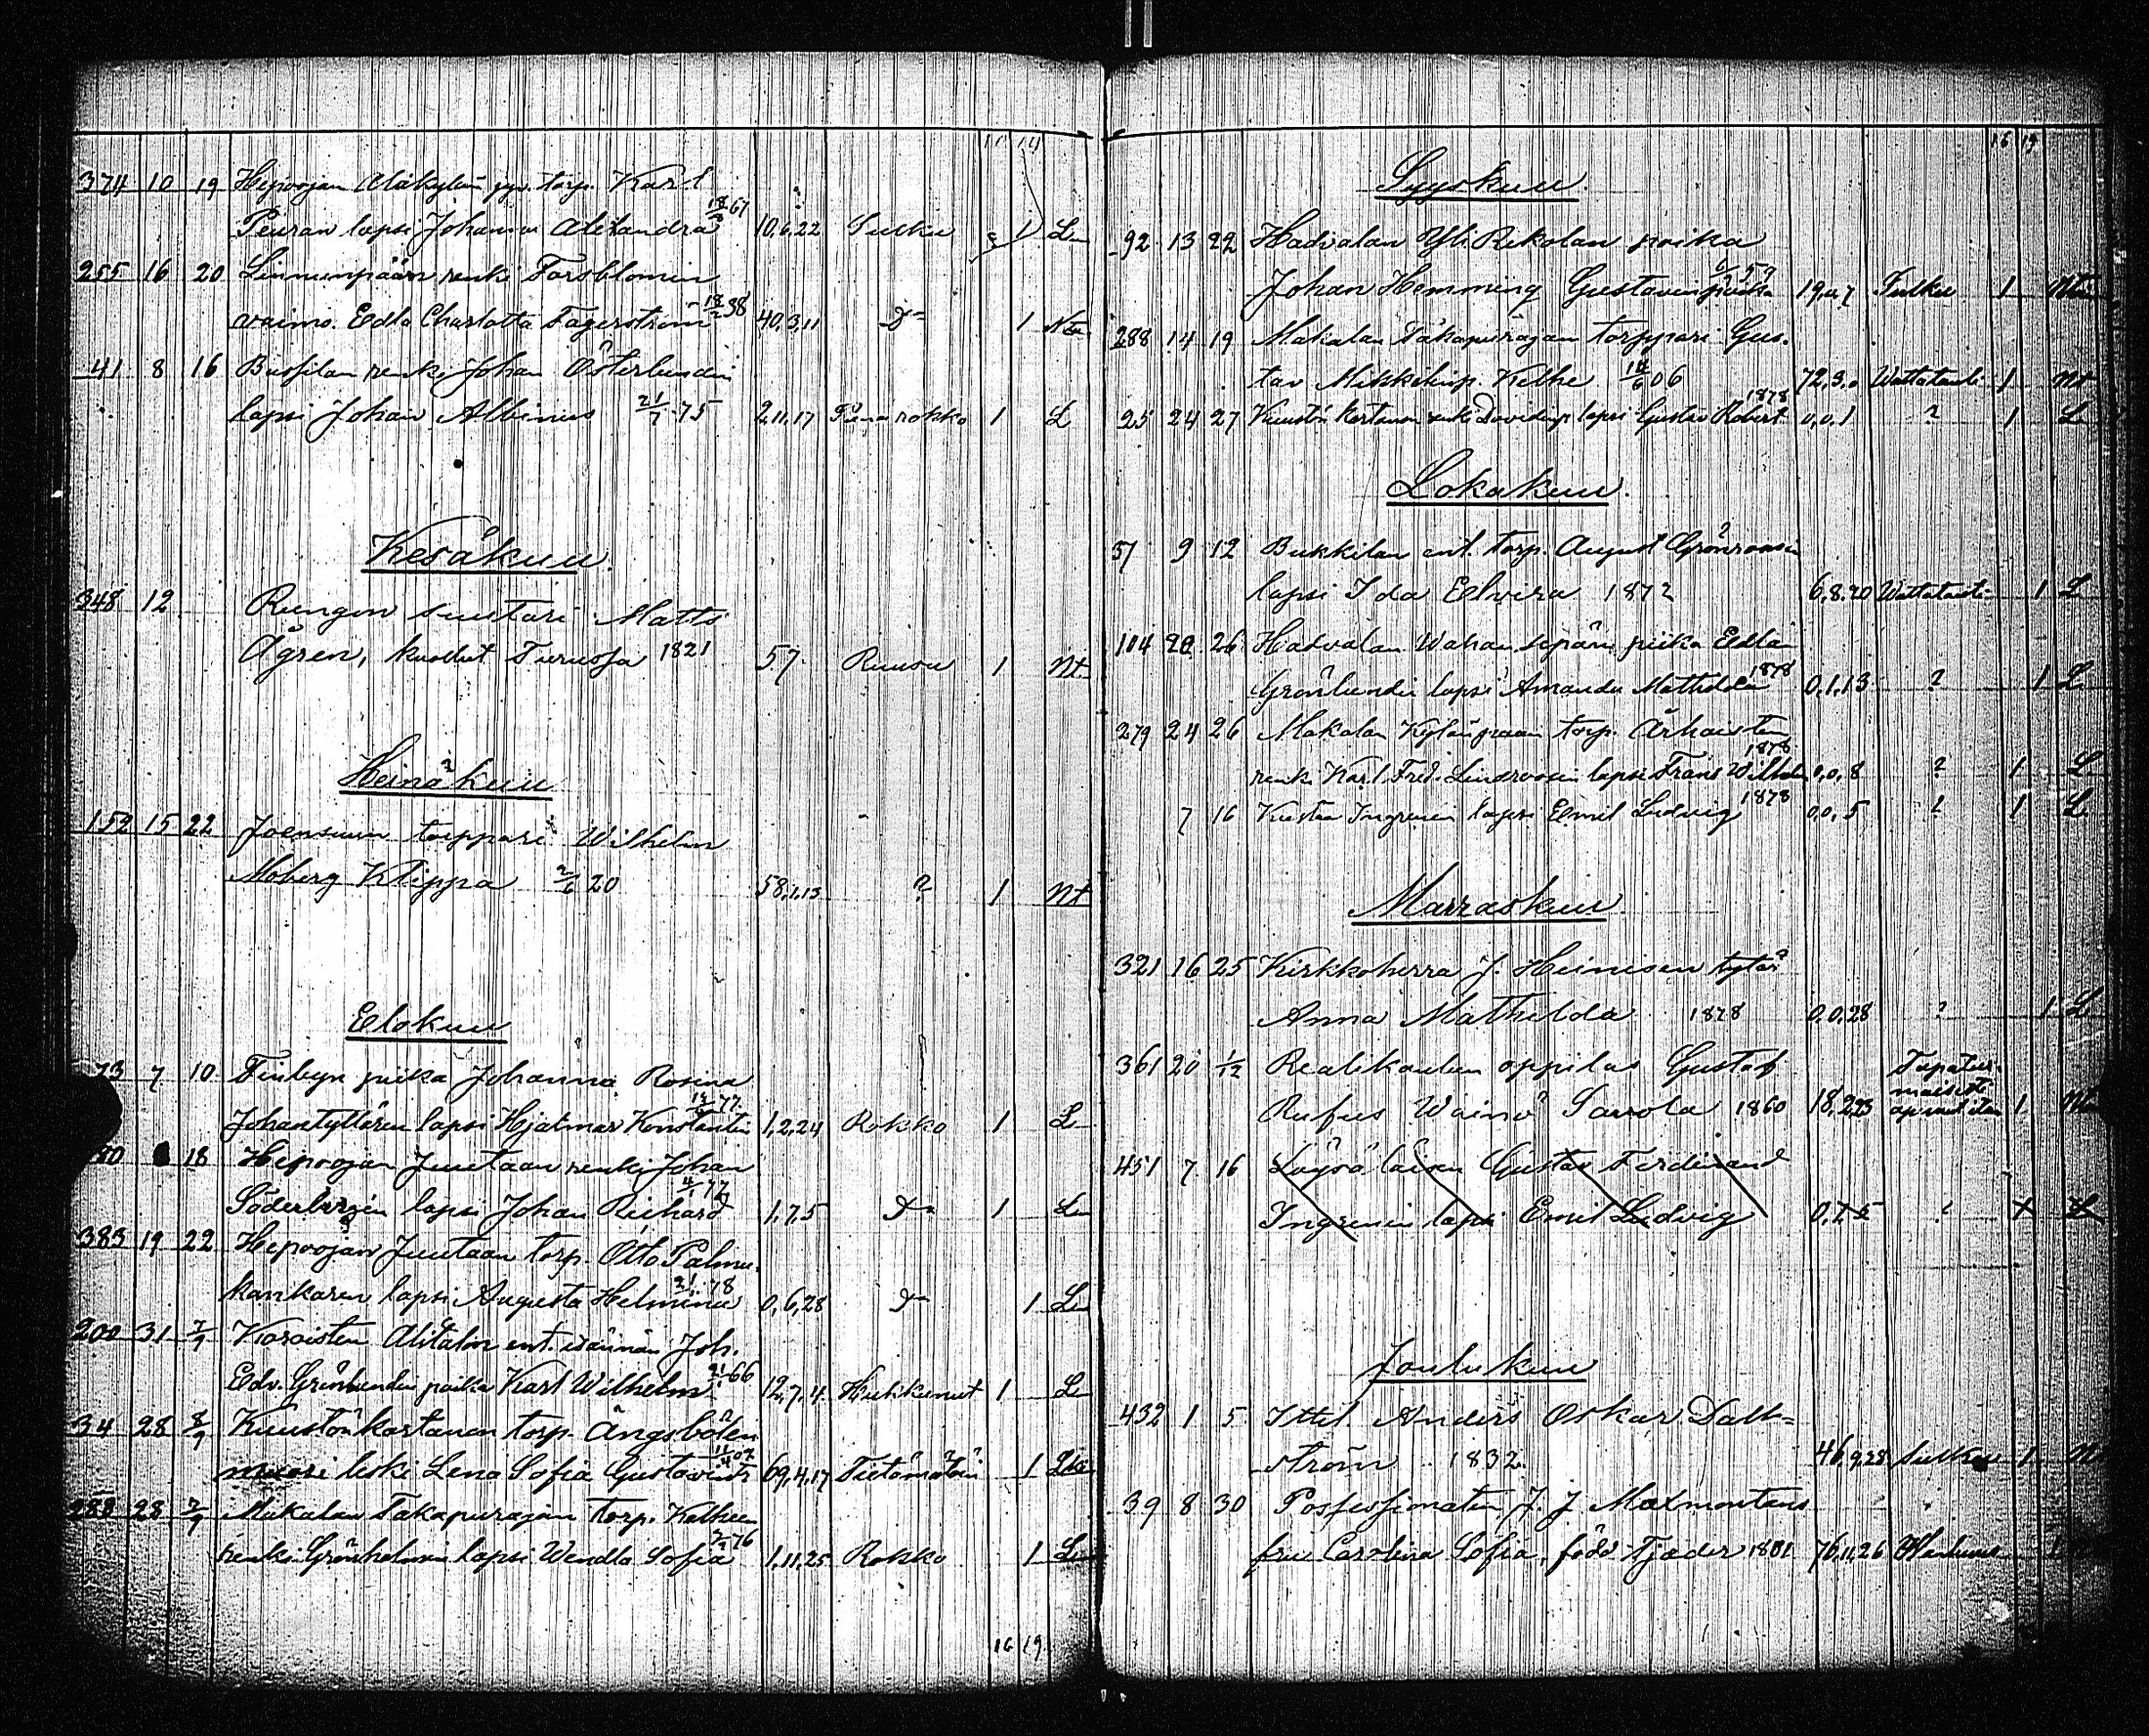 16 19
374 10 19 Hepoojan Alakylän torp. Karl
Peuran lapsi Johanna Alexandra 18/3 67 10,6,22 Tulku 1 L
255 16 20 Linnunpään renki Forsblomin
vaimo Edla Charlotta Fagerström 38 40,3,11 D:o 1 Na
41 8 16 Bussilan renki Johan Österlundin
lapsi Johan Albinus 21/7 75 2,11,17 rokko 1 L
Kesäkuu.
348 12 Rungon suutari Matts
Ågren, kuollut Turussa 1821 57 Ruusu 1 Nt
Heinäkuu
152 15 22 Joensuun torppari Wilhelm
Moberg Klippa 2/6 20 58,1,13 ? 1 Nt
Elokuu
73 7 10 Finbyn piika Johanna Rosina
Johantyttären lapsi Hjalmar Konstantin 77 1,2,24 Rokko 1 L
18 Hepoojan Juutaan renki Johan
Söderbergin lapsi Johan Richard 77 1,7,5 D:o 1 L
383 19 22 Hepoojan Juutaan torp. Otto Palmu
kankaren lapsi Augusta Helmina 21/1 78 0,6,28 D:o 1 L
200 31 7/9 Karoisten Alitalon ent. isännän Joh.
Edv. Grönlundin poika Karl Wilhelm 66 12,7,4 Hukkunut 1 L
34 28 8/9 Kuustonkartanon torp. Ängsboden
muori leski Lena Sofia 11/4 69,4,17 Tietämätöin 1
288 28 7/9 Makalan Takapurajan torp. Kelheen
renki Grönholmin lapsi Wendla Sofia 76 1,11,25 Rokko 1 L
16 19
16 19
Syyskuu.
92 13 22 Hadvalan Yli Rekolan poika
Johan Hemming Gustavinpoika 59 19, Tulku 1
288 14 19 Makalan Takapurajan torppari Gus-
tav Mikkelinp. Kelhe 14/6 06 72,3,0 Wattatauti 1 Nt
25 24 27 Kuustön kartanon renki Davidinp. lapsi Gustav Robert 1878 0,0,1 ? 1 L
Lokakuu.
57 9 12 Bukkilan ent. torp. August Grönroosin
lapsi Ida Elvira 1872 6,8,20 Wattatauti 1 L
104 20 26 Hadvalan Wahan sepän piika Edla
Grönlundin lapsi Amanda Mathilda 1878 0,1,13 ? 1 L
279 24 26 Makalan Kylänpään torp. Ärhaisten
renki Karl Fred. Lindroosin lapsi Frans Wilhelm 1878 0,0,8 ? 1 L
7 16 Kustaa Ingrenin lapsi Emil Ludvig 1878 0,0,5 ? 1 L
Marraskuu.
321 16 25 Kirkkoherra J. Heinisen tytär
Anna Mathilda 1878 0,0,28 ? 1 L
361 20 1/12 Realikoulun oppilas Gustaf
Rufus Wäinö Sarrola 1860 18,2,23 Tapatur-
maisesti
1
451 7 16 Löysäläisen Gustav Ferdinand
Ingrenin lapsi Emil Ludvig ?
Joulukuu
432 1 5 Ittel. Anders Oskar Dalk=
ström 1832 46,9,28 1 N
39 8 30 Possessionaten J. J. Malmontans
fru Carolina Sofia, född Tjäder 1801 76,11,26 Wanhuus 1